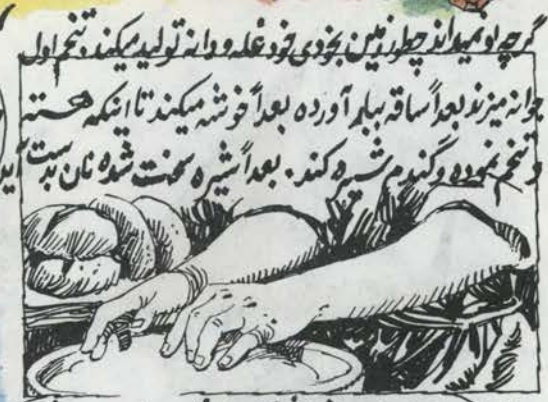 گرچه او نمیداند چطور زمین بخودی خود غله و دانه تولید میکند، تخم اول
جوانه میزند بعداً ساقه ببار آورده بعداً خوشه میکند تا اینکه هسته
و تخم نموده و گندم شیره کند. بعداً شیره سخت شده نان بدست آید